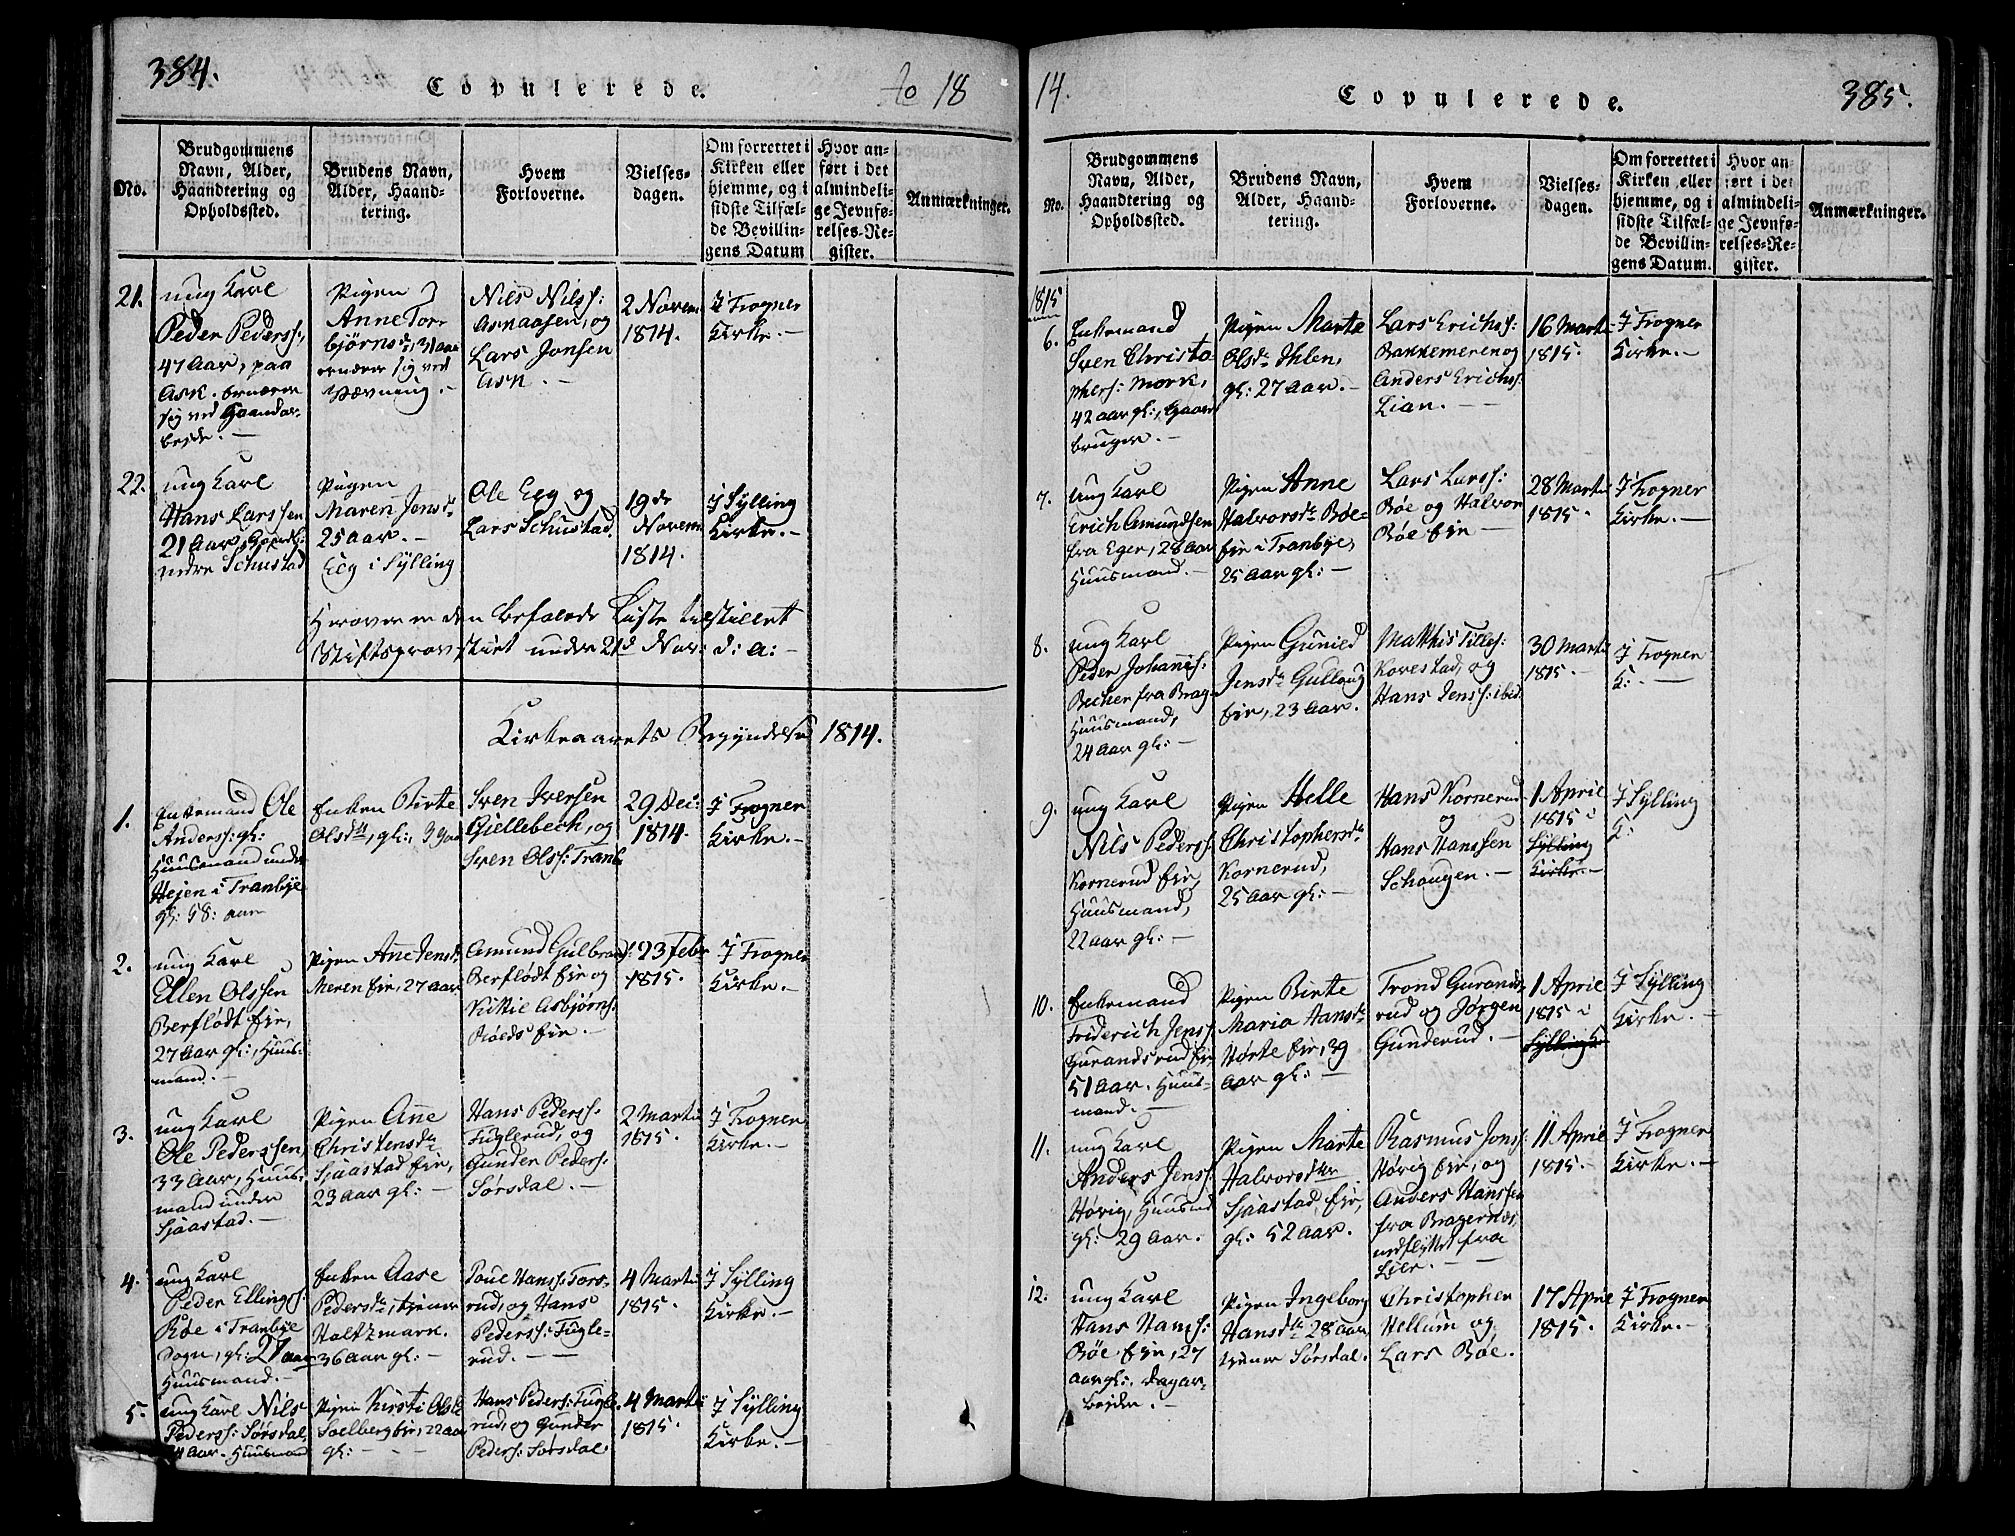 384.
Copulerede.
Ao 18
No.
Brudgommens
Navn, Alder,
Haandtering og
Opholdssted.
Brudens Navn,
Alder, Haand-
tering.
Hvem
Forloverne.
Vielses-
dagen.
Om forrettet i
Kirken eller
hjemme, og i
sidste Tilfæl-
de Bevillin-
gens Datum
Hvor an-
ført i det
almindeli-
ge Jevnfø-
relses-Re-
gister.
Anmærkninger.
21.
ung Karl
Peder Peders:,
47 Aar, paa
Ask. ernærer
sig ved Haandar-
beide. –
Pigen
Anne Tor-
bjørnsdr, 31 aar
ernærer sig ved
Vævning. –
Nils Nilss:
Asnaasen, og
Lars Jonsen
Ask. –
2 Novem
1814.
I Frogner
Kirke. –
22.
ung Karl
Hans Larssen
21 Aar, Gaardbr:
nedre Schustad
Pigen
Maren Jonsdr
25 aar. –
Egg i Sylling
Ole Egg og
Lars Schustad.
19de
Novem
1814.
I Sylling
Kirke. –
Herover er den befalede Liste tilstillet
Stiftsprovstiet under 21d Nov: d: a: –
Kirkeaarets Begyndelse 1814.
1.
Enkemand Ole
Anderss: gl:
Huusmand under
Hejen i Tranbye
gl: 58: aar
Enken Birte
Olsdtr, gl:, 39 aar
Sven Iversen
Gjellebech, og
Sven Olss: Tranb.
29 Dec:
1814.
I Frogner
Kirke. –
2.
ung Karl
Ellen Olssen
Berflødt Eie,
27 aar gl:, Huus-
mand. –
Pigen Ane Jensdr
Meren Eie, 27 aar
Amund Gulbrands:
Berflødt Eie og
Kittil Asbjørns:
Røeds Eie. –
23 Febr
1815.
I Frogner
Kirke. –
3.
ung Karl
Ole Pederssen,
33 Aar, Huus-
mand under
Sjaastad. –
Pigen Ane
Christensdr
Sjaastad Eie,
23 aar gl: –
Hans Pederss:
Fuglerud, og
Gunder Peders:
Sørsdal. –
2 Martii
1815.
I Frogner
Kirke. –
4.
ung Karl
Peder Ellings:
Bøe i Tranbye
Sogn, gl: 27 aar
Huusmand. –
Enken Aase
Pedersdr, tjener
Holtzmark.
36 aar gl: –
Poul Hanss: Tors-
rud, og Hans
Pederss: Fugle-
rud. –
4 Martii
1815.
I Sylling
Kirke. –
5.
ung Karl Nils
Pederss: Sørsdal,
24 aar. Huusmand
Pigen Kirsti Olsdr
Solberg Eie, 22 aar
gl: –
Hans Peders: Fugle-
rud, og Gunder
Peders: Sørsdal
4 Martii
1815.
I Sylling
Kirke. –
14.
Copulerede.
385.
No.
Brudgommens
Navn, Alder,
Haandtering og
Opholdssted.
Brudens Navn,
Alder, Haand-
tering.
Hvem
Forloverne.
Vielses-
dagen.
Om forrettet i
Kirken eller
hjemme, og i
sidste Tilfæl-
de Bevillin-
gens Datum.
Hvor an-
ført i det
almindeli-
ge Jevnfø-
relses-Re-
gister.
Anmærkninger.
1815
6.
Enkemand
Sven Christo-
phers: Mork,
42 aar gl:, Gaard-
bruger. –
Pigen Marte
Olsdr Ihlen,
gl: 27 Aar. –
Lars Erichss:
Bakkemeren og
Anders Erichss:
Lian. –
16 Martii
1815.
I Frogner
Kirke. –
7.
Ung Karl
Erich Amundsen
fra Eger, 28 aar
Huusmand. –
Pigen Anne
Halvorsdr Bøe-
Eie i Tranbye,
25 aar gl: –
Lars Larss:
Bøe og Halvor
Bøe Eie –
28 Martii
1815.
I Frogner
Kirke. –
8.
ung Karl
Peder Johanns:
Becher fra Brag:
Huusmand,
24 aar gl: –
Pigen Gunild
Jensdr Gullaug
Eie, 23 Aar.
Matthis Tills:
Kovestad, og
Hans Jenss: ibid.
30 Martii
1815. –
I Frogner
K: –
9.
ung Karl
Nils Pederss:
Kornerud Eie,
Huusmand,
22 aar gl: –
Pigen Helle
Christophersdr
Kornerud,
25 Aar gl: –
Hans Kornerud
og
Hans Hanssen
Schougen. –
1 April
1815 i
Sylling
Kirke. –
I Sylling
K:
10.
Enkemand
Friderich Jenss:
Gurandsrud Eie,
51 Aar. Huus-
mand. –
Pigen Birte
Maria Hansdr
Hørte Eie, 39
Aar gl: –
Trond Gurands-
rud og Jørgen
Gunderud. –
1 April
1815 i
Sylling K:
I Sylling
Kirke. –
11.
ung Karl
Anders Jenss:
Høvig, Huusmd
gl: 29 Aar.
Pigen Marte
Halvorsdter
Sjaastad Eie,
gl: 52 Aar.
Rasmus Jons:
Høvig Eie, og
Anders Hanssen
fra Bragernæs,
udflyttet fra
Lier. –
11 April
1815.
I Frogner
Kirke. –
12.
ung Karl
Hans Hans:
Bøe Eie, 27
aar gl:. Dagar-
beider. –
Pigen Ingeborg
Hansdtr 28 aar
tjener Sørsdal.
Christopher
Hellum og
Lars Bøe.
17 April
1815.
I Frogner
Kirke. –